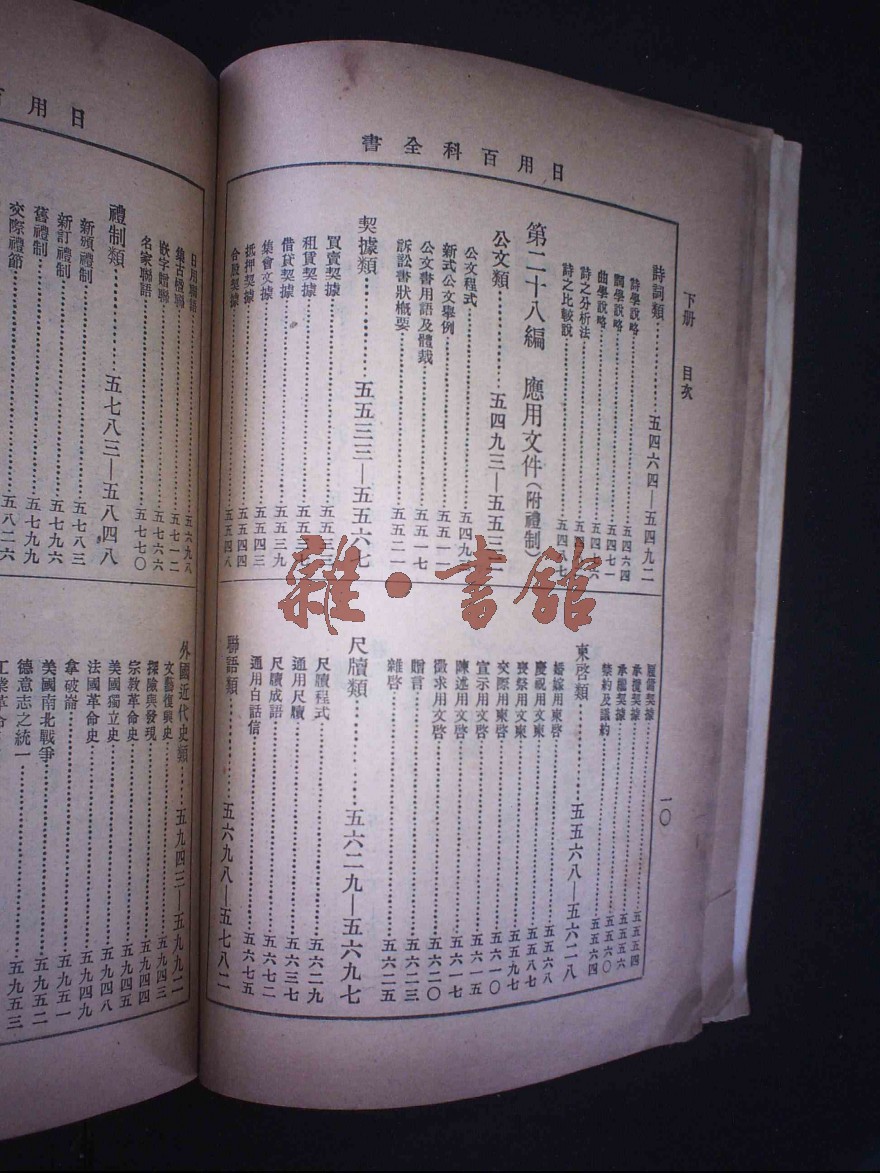 日用百科全書
下册 目次
一〇
詩詞類……五四六四—五四九二
詩學說略……五四六四
詞學說略……五四七一
曲學說略
詩之分析法
詩之比較說……五四八七
第二十八編 應用文件(附禮制)
公文類……五四九三—五五三二
公文程式
新式公文舉例……五五一一
公文書用語及體裁……五五一七
訴訟書狀概要……五五二一
契據類……五五三三—五五六七
買賣契據……五五三三
租賃契據……五五三七
借貸契據……五五三九
集會文據……五五四三
抵押契據……五五四四
合股契據……五五四八
雇傭契據……五五五四
承攬契據……五五五六
禁約及議約……五五六〇
五五六四
柬啓類……五五六八—五六二八
婚嫁用柬啓……五五六八
慶祝用文柬……五五八七
喪祭用文柬……五五九七
交際用柬啓……五六一〇
宣示用文啓……五六一五
陳述用文啓……五六一七
徵求用文啓……五六二〇
贈言……五六二三
雜啓……五六二五
尺牘類……五六二九—五六九七
尺牘程式……五六二九
通用尺牘……五六三七
尺牘成語……五六七二
通用白話信……五六七五
聯語類……五六九八—五七八二
日用
日用聯語……五六九八
集古楹聯……五七一二
嵌字贈聯……五七六六
名家聯語……五七七〇
禮制類……五七八三—五八四八
新頒禮制……五七八三
新訂禮制……五七九六
舊禮制……五七九九
交際禮節……五八二六
外國近代史類……五九四三—五九九二
文藝復興史……五九四三
探險與發現……五九四四
宗教革命史……五九四五
美國獨立史……五九四八
法國革命史……五九四九
拿破崙……五九五一
美國南北戰爭……五九五二
德意志之統一……五九五三
工業革命
雜·書館